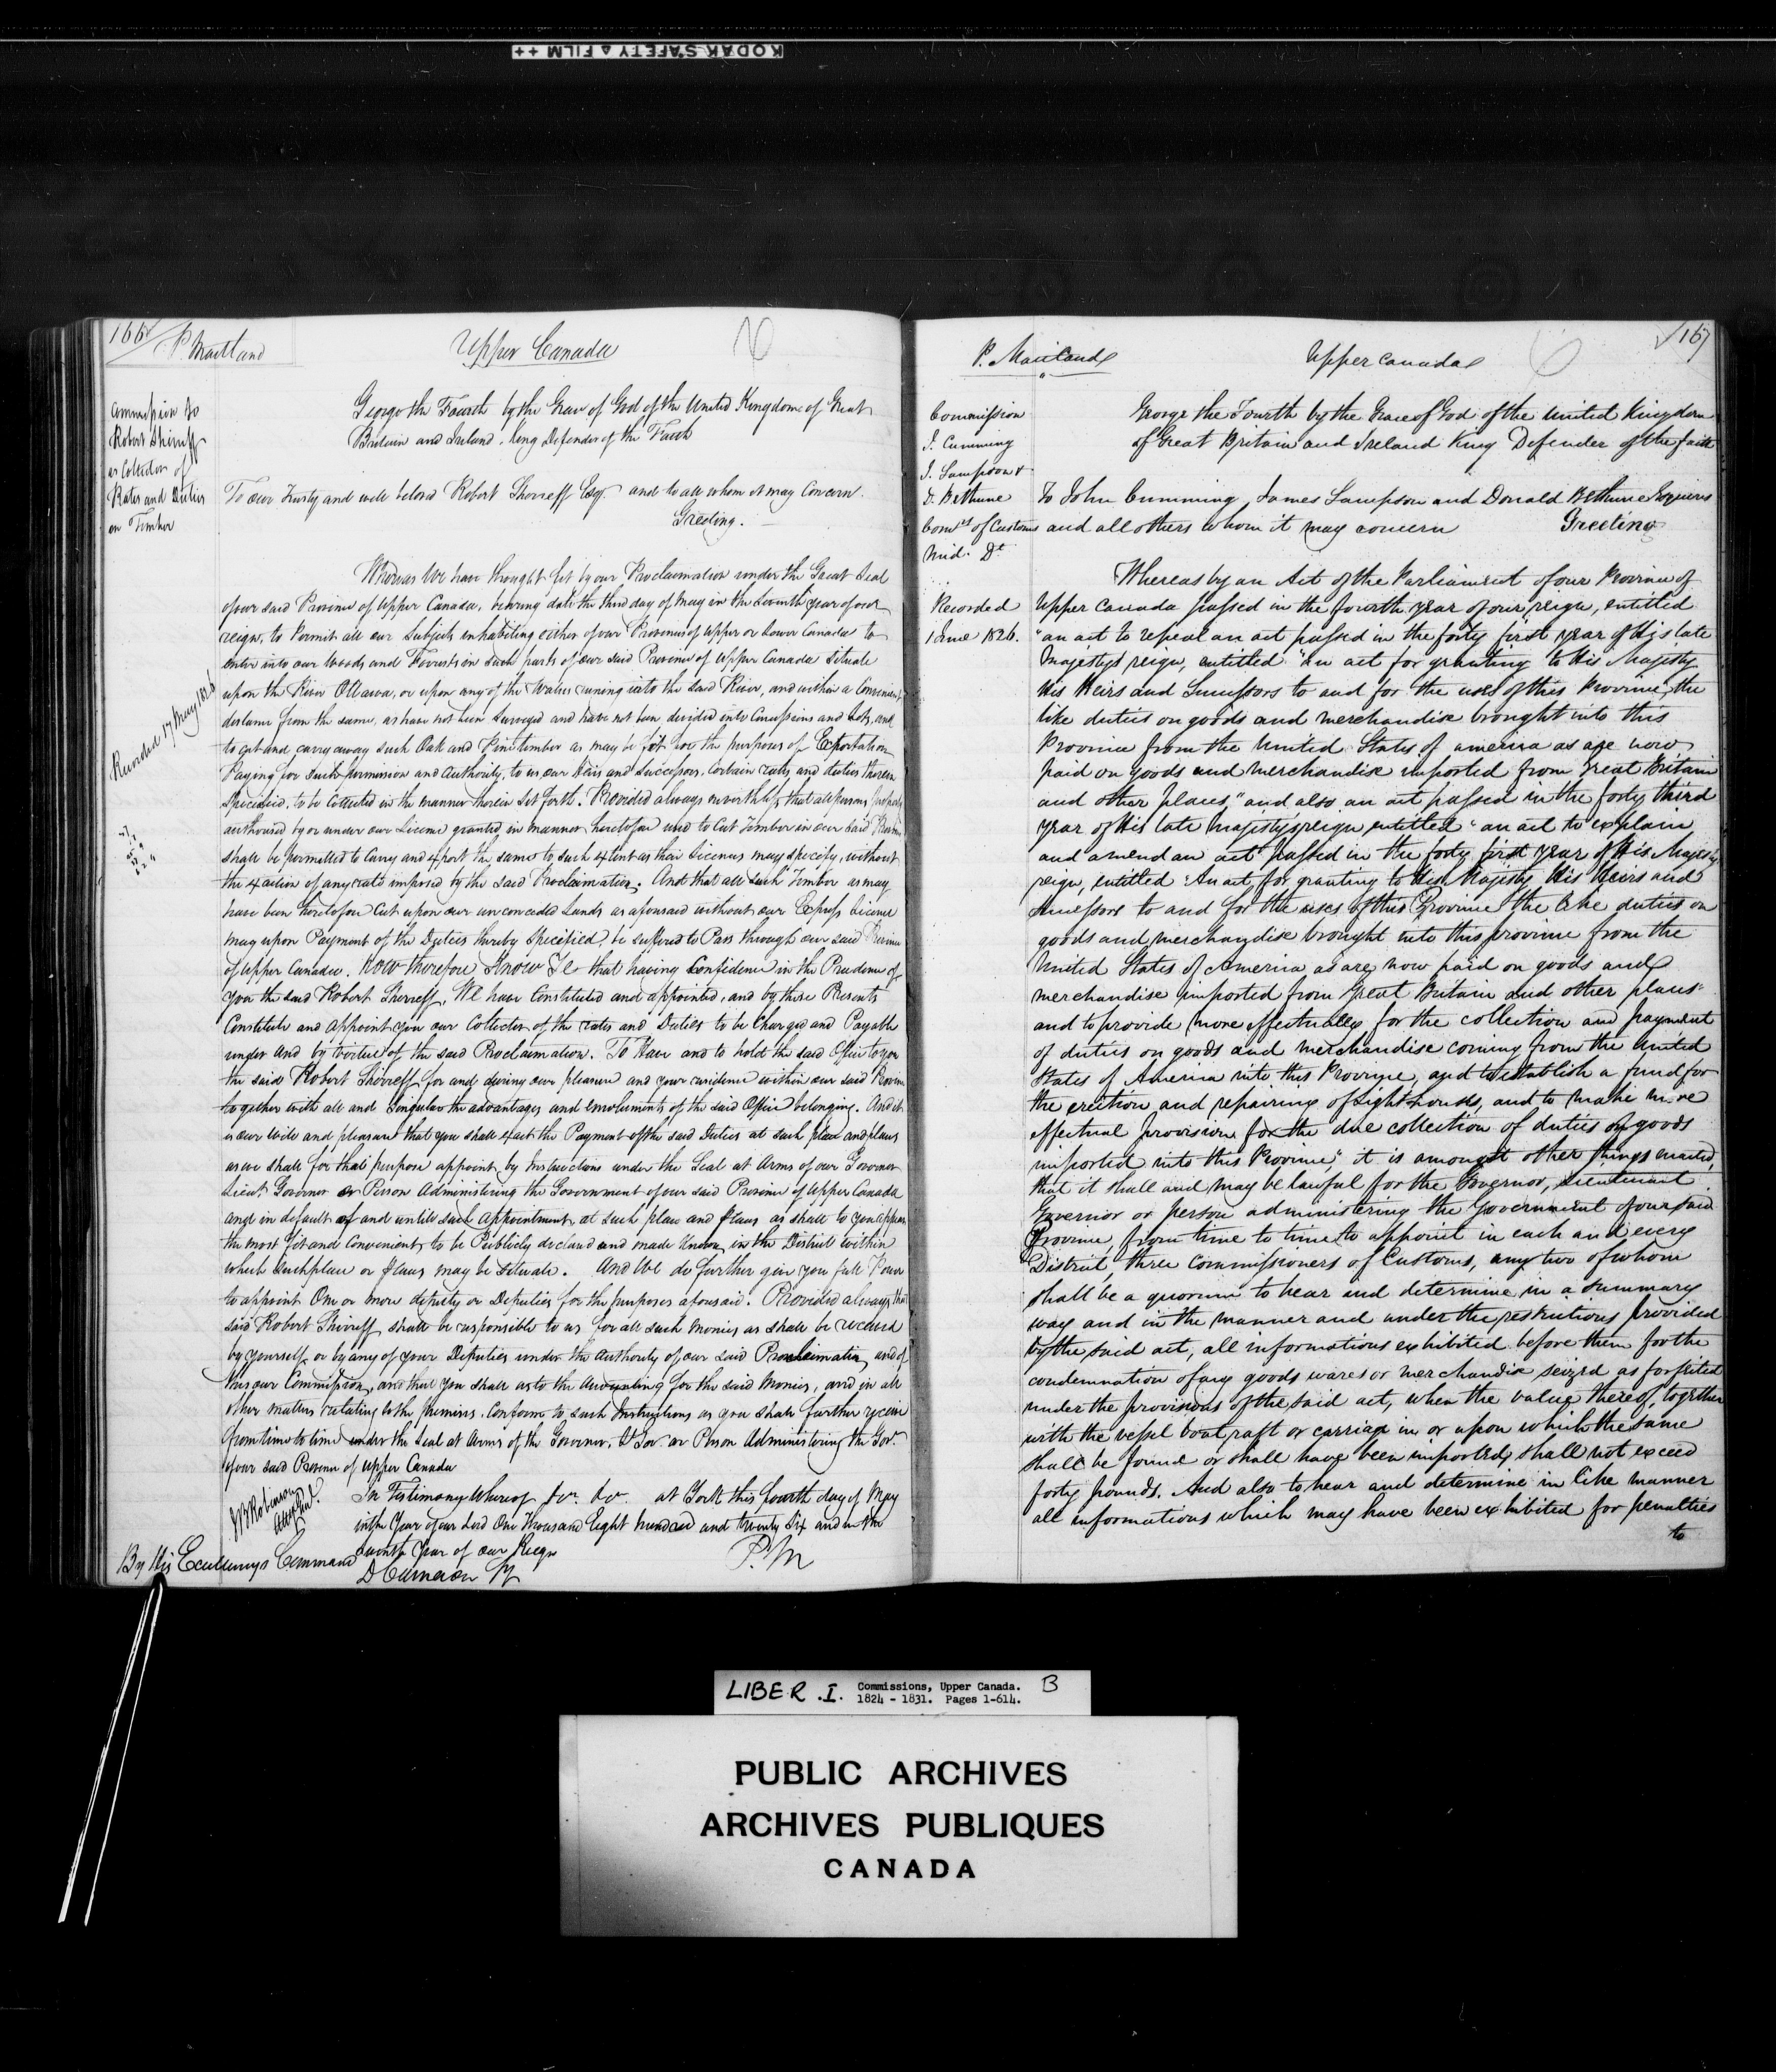 KODAK SAFETY FILM ++
166
P Maitland
Upper Canada
Commission to
Robert Shirreff
as Collector of
Rates and Duties
on Timber
Recorded 17 May 1826
George the Fourth by the Grace of God of the United Kingdom of Great
Britain and Ireland, King Defender of the Faith
To our Trusty and well beloved Robert Shirreff Esqr. and to all whom it may Concern.
Greeting.
Whereas We have thought fit by our Proclamation under the Great Seal
of our said Province of Upper Canada, bearing date the third day of May in the Seventh year of our
reign, to Permit all our Subjects inhabiting either of our Provinces of Upper or Lower Canada to
enter into our Woods and Forrests in such parts of our said Province of Upper Canada Situate
upon the River Ottawa, or upon any of the Waters runing into the said River, and within a Convenient
distance from the same, as have not been Surveyed and have not been divided into Concessions and Lots, and
to cut and carry away such Oak and Pine timber as may be fit for the purposes of Exportation
Paying for such permission and Authority, to us our Heirs and Successors, Certain rates and duties therein
Specified, to be Collected in the manner therein Set forth. Provided always nevertheless that all persons properly
authorised by or under our License granted in manner heretofore used to Cut Timber in our said Province
shall be permitted to Carry and export the same to such extent as their Licences may specify, without
the exaction of any rate imposed by the said Proclamation. And that all such Timber as may
have been heretofore Cut upon our unconceded Lands as aforesaid without our Express License
may upon Payment of the Duties thereby Specified, be suffered to Pass through our said Province
of Upper Canada. Now therefore Know Ye that having Confidence in the Prudence of
you the said Robert Sherreff, We have Constituted and appointed, and by these Presents
Constitute and appoint you our Collector of the rates and Duties to be Charged and Payable
under and by virtue of the said Proclamation. To Have and to hold the said Office to you
the said Robert Shirreff for and during our pleasure and your residence within our said Province
together with all and Singular the advantages and emoluments of the said Office belonging. And it
is our Will and pleasure that you shall exact the Payment of the said Duties at such place and places
as we shall for that purpose appoint by Instructions under the Seal at Arms of our Governor
Lieut. Governor or Person Administering the Government of our said Province of Upper Canada
and in default of and until such Appointment at such place and places as shall to you appear
the most fit and Convenient, to be Publicly declared and made Known in the District within
which such place or places may be Situate. And We do further give you full Power
to appoint One or more deputy or Deputies for the purposes aforesaid. Provided always that
said Robert Shirreff shall be responsible to us for all such Monies as shall be received
by yourself or by any of your Deputies under the authority of our said Proclamation and of
this our Commission, and that you shall as to the Accounting for the said Monies, and in all
other matters relating to the premises, Conform to such Instructions as you shall further receive
from time to time under the Seal at Arms of the Governor, Lt Gov or Person Administering the Govt.
of our said Province of Upper Canada
In Testimony Whereof &c. &c. at York this fourth day of May
in the Year of our Lord One Thousand Eight hundred and twenty Six and in the
Seventh Year of our Reign
J B Robinson
Atty Genl.
P. M
By His Excellencys Command
D Cameron
167
P. Maitland
Upper Canada
Commission
J. Cumming
J. Sampson &
D. Bethune
Comrs of Customs
Mid. Dt
Recorded
1 June 1826.
George the Fourth by the Grace of God of the United Kingdom
of Great Britain and Ireland King Defender of the faith
To John Cumming, James Sampson and Donald Bethune Esquires
and all others whom it may concern Greeting
Whereas by an Act of the Parliament of our Province of
Upper Canada passed in the fourth year of our reign, entitled
"an act to repeal an act passed in the forty first year of His late
Majestys reign, entitled "An act for granting to His Majesty
His Heirs and Successors to and for the uses of this Province, the
like duties on goods and merchandise brought into this
Province from the United States of america as are now
paid on goods and merchandise imported from Great Britain
and other places," and also an act passed in the forty third
year of His late Majestys reign entitled "an act to explain
and amend an act passed in the forty first year of His Majestys
reign, entitled "An act for granting to His Majesty His Heirs and
Successors to and for the uses of this Province the like duties on
goods and merchandise brought into this province from the
United States of America as are now paid on goods and
merchandise imported from Great Britain and other places"
and to provide more effectually for the collection and payment
of duties on goods and merchandise coming from the United
States of America into this Province, and to establish a fund for
the erection and repairing of Light houses, and to make more
effectual provision for the due collection of duties on goods
imported into this Province," it is amongst other things enacted,
that it shall and may be lawful for the Governor, Lieutenant
Governor or person administering the Government of our said
Province, from time to time to appoint in each and every
District, three Commissioners of Customs, any two of whom
shall be a quorum to hear and determine in a summary
way and in the manner and under the restrictions provided
by the said act, all informations exhibited before them for the
condemnation of any goods wares or merchandise seized as forfeited
under the provisions of the said act, when the value thereof, together
with the vessel boat, raft or carriage in or upon which the same
shall be found or shall have been imported, shall not exceed
forty pounds. And also to hear and determine in like manner
all informations which may have been exhibited for penalties
to
LIBER .I. Commissions, Upper Canada. B
1824 - 1831. Pages 1-614.
PUBLIC ARCHIVES
ARCHIVES PUBLIQUES
CANADA